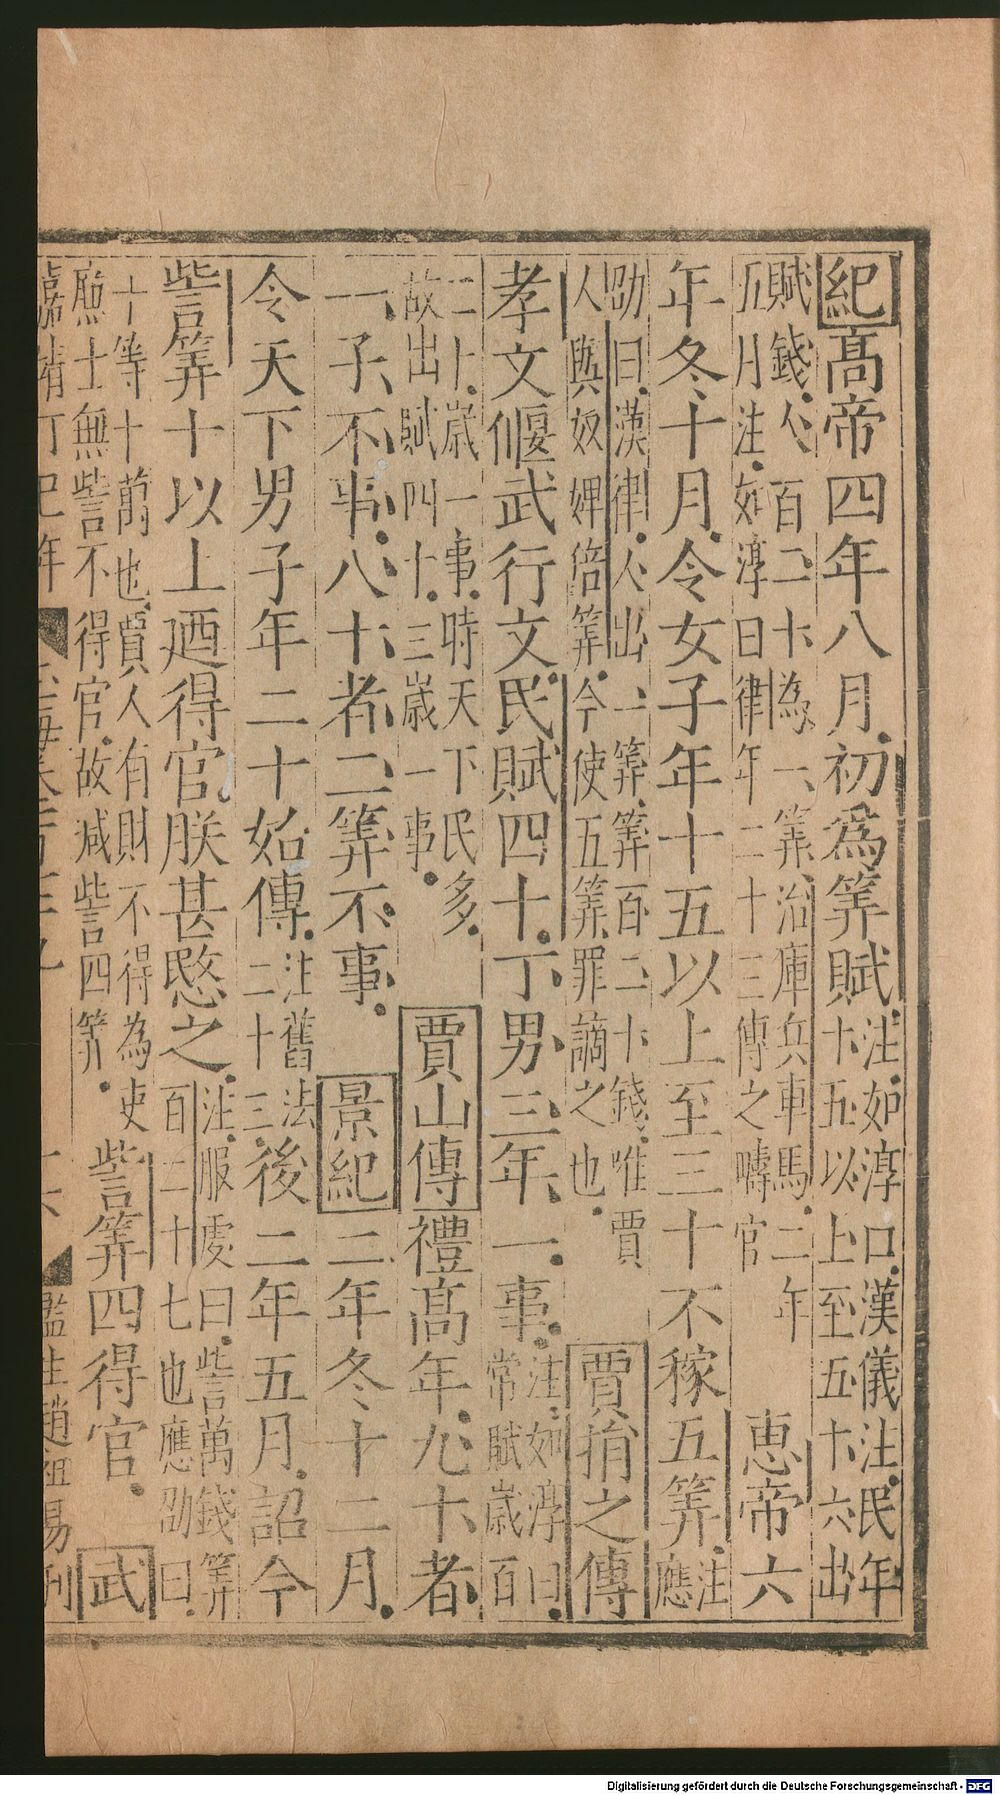 紀高帝四年八月初為筭賦注如淳口漢儀注民年十五以上至五十六出
賦錢人百二十為一筭治庫兵車馬二年五月注如淳曰律年二十三傅之疇官惠帝六
年冬十月令女子年十五以上至三十不稼五筭注應
劭曰漢律人出一筭筭百二十錢唯賈人與奴婢倍筭今使五筭罪謫之也賈捐之傳
孝文偃武行文民賦四十丁男三年一事注如淳曰常賦歲百
二十歲一事時天下民多故出賦四十三歲一事賈山傳禮高年九十者
一子不事八十者二筭不事景紀二年冬十二月
令天下男子年二十始傅注舊法二十三後二年五月詔今
訾筭十以上廼得官朕甚愍之注服虔曰訾萬錢筭百二十七也應劭曰
十筭十萬也賈人有財不得為吏廉士無訾不得官故減訾四筭訾筭四得官武
嘉靖丁巳年
監生趙祖易刊
Digitalisierung gefördert durch die Deutsche Forschungsgemeinschaft - DFG